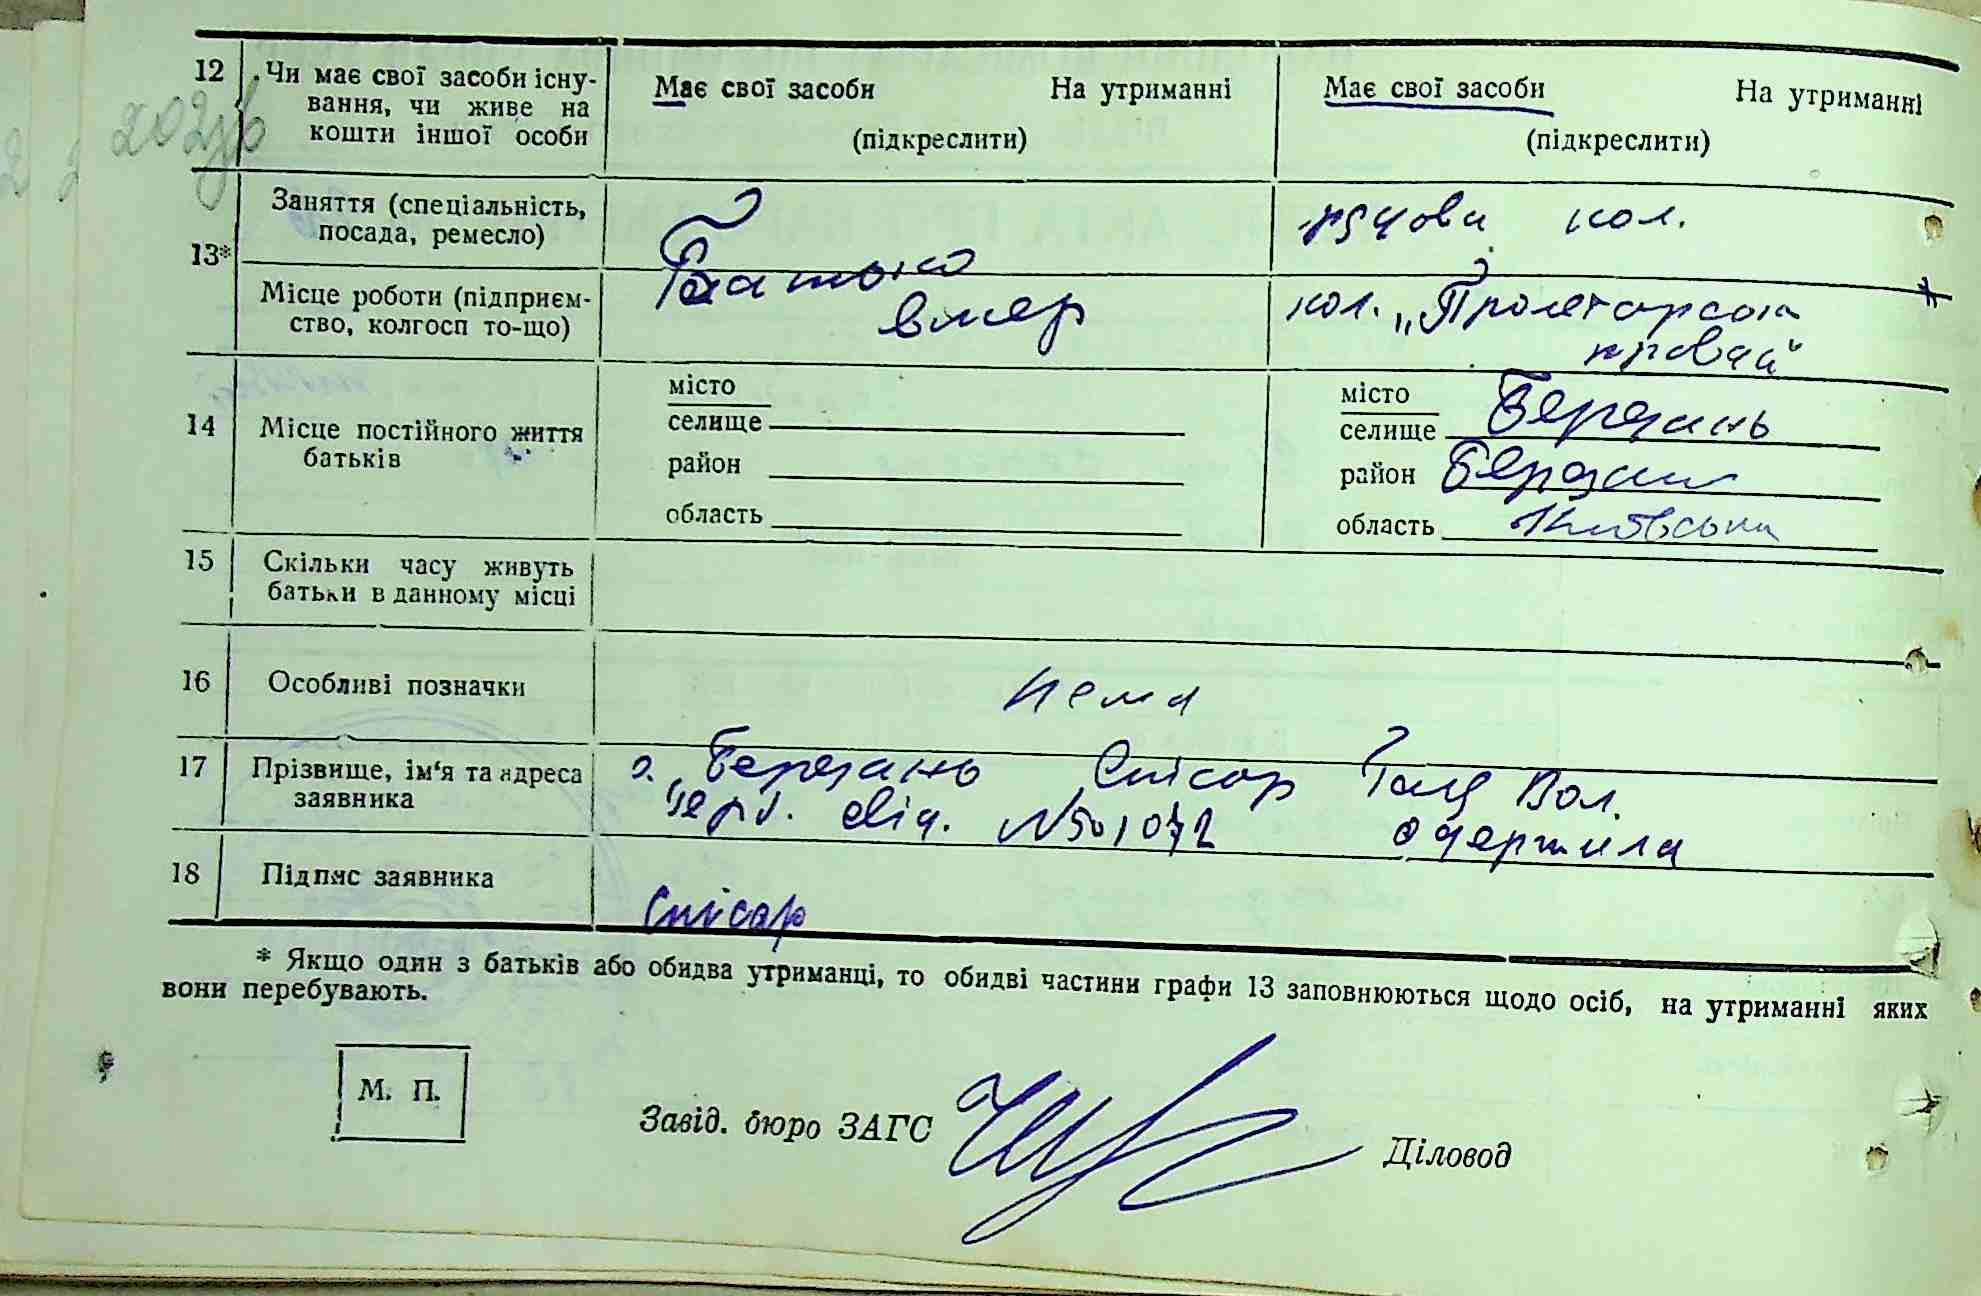 12 Чи має свої засоби існу-
вання, чи живе на
кошти іншої особи
Має свої засоби На утриманні
(підкреслити)
Має свої засоби На утриманні
(підкреслити)
13* Заняття (спеціальність,
посада, ремесло)
рядова кол.
Місце роботи (підприєм-
ство, колгосп то-що)
Батько
вмер
кол. „Пролетарська
правда"
14 Місце постійного життя
батьків
місто
селище
район
область
місто
селище Березань
район Березан
область Київська
15 Скільки часу живуть
батьки в данному місці
16 Особливі позначки
нема
17 Прізвище, ім'я та адреса
заявника
с. Березань Снісар Вол.
свід. N501072 одержила
18 Підпис заявника
Снісар
* Якщо один з батьків або обидва утриманці, то обидві частини графи 13 заповнюються щодо осіб, на утриманні яких
вони перебувають.
М. П.
Завід. бюро ЗАГС
Діловод